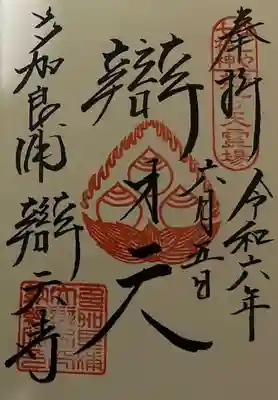 奉拝
令和六年
六月五日
辯才天
多加良浦
辯天寺